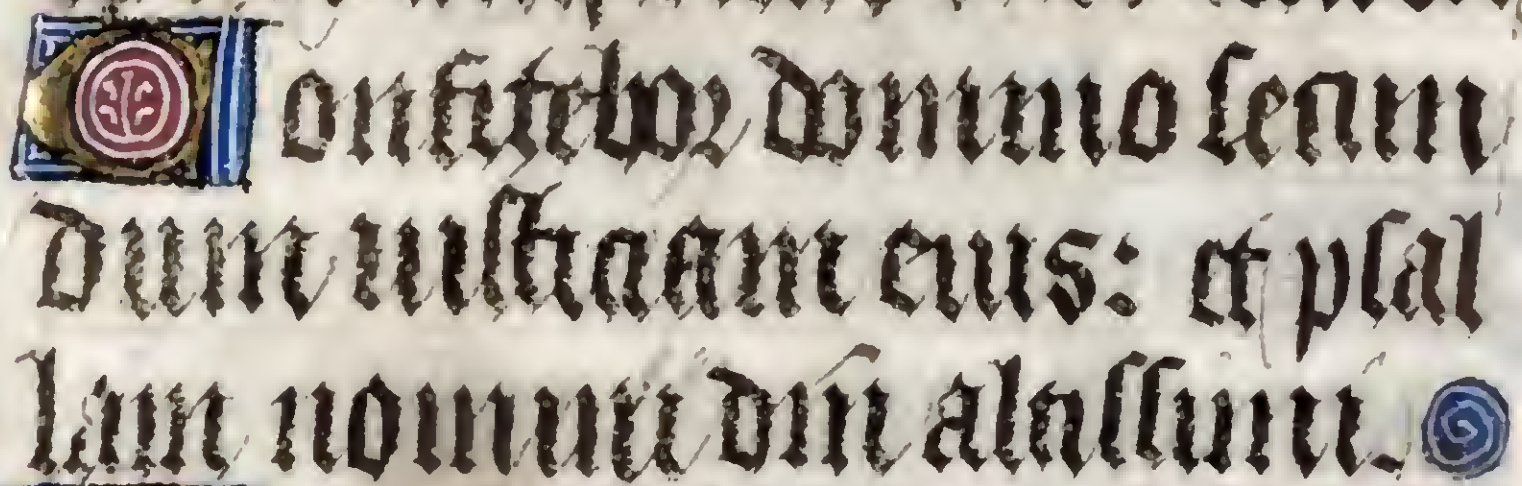 Confitebor domino secun
dum iusticiam eius: et psal
lam nomini dni altissimi.